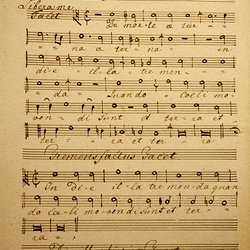 Libera me
Tacet
De morte æ ter
na a ter na in
di e il la tre men
da Quando coeli mo
ven di Sunt et ter ra et
ter ra et ter
Tremens factus Tacet
In Die il la tremenda quan
do coeli movendi sunt et ter
ra